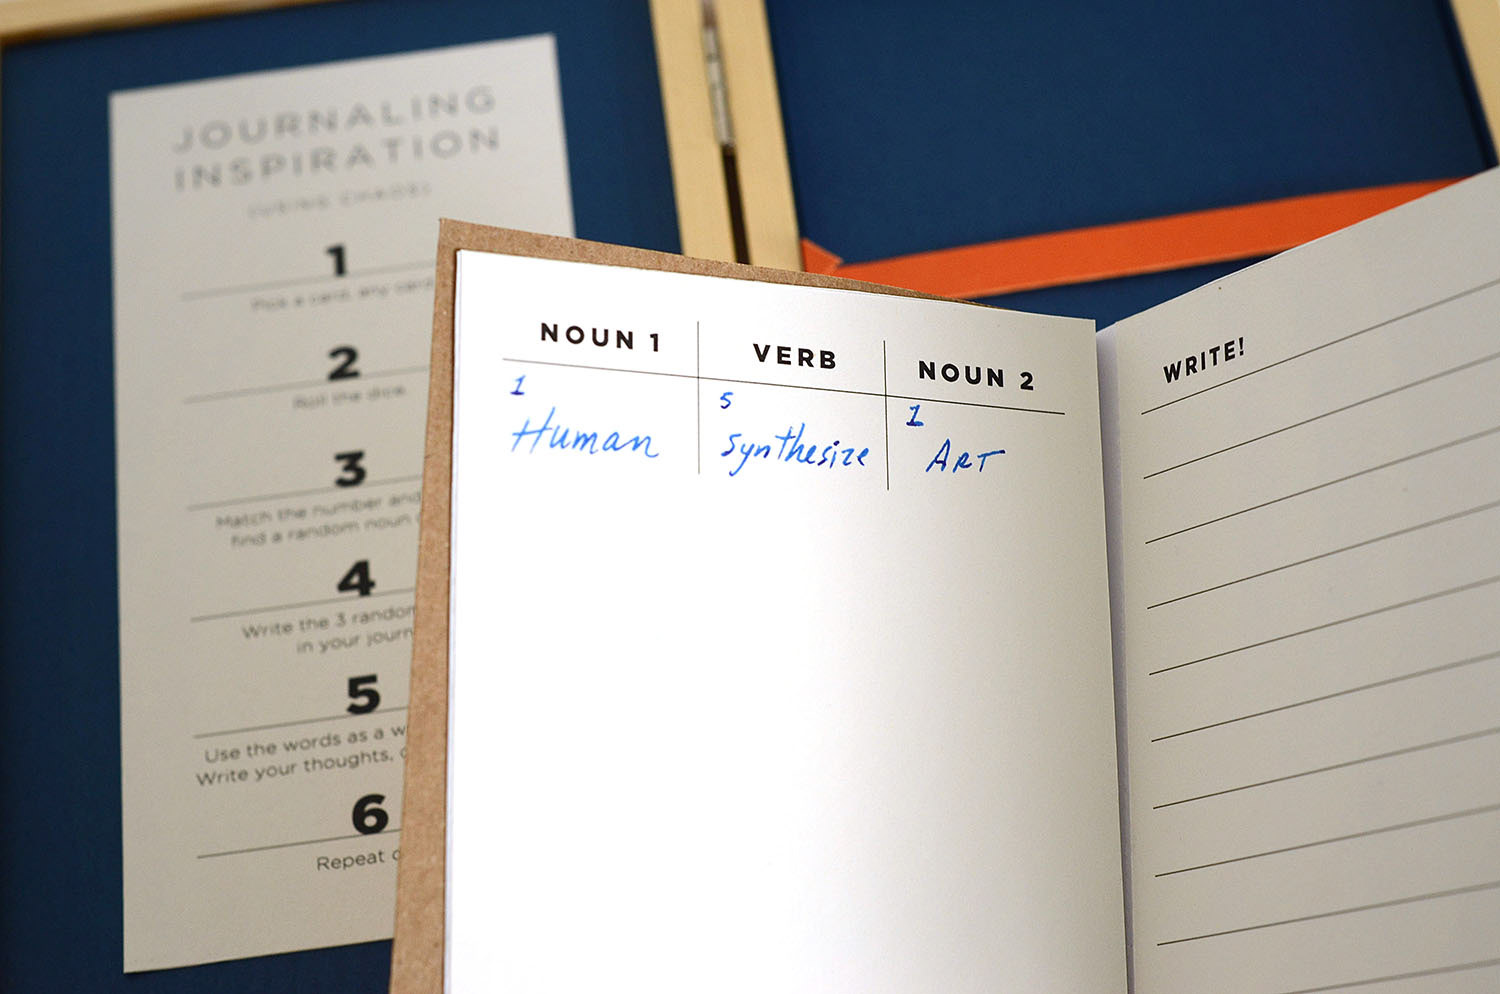 JOURNALING
INSPIRATION
(USING CHAOS)
1
Pick a card, any card
2
Roll the dice.
3
Match the number and
find a random noun
4
Write the 3 random
in your journ
5
Use the words as a w
Write your thoughts,
6
Repeat
NOUN 1
VERB
NOUN 2
1
5
1
Human
Synthesize
ART
WRITE!